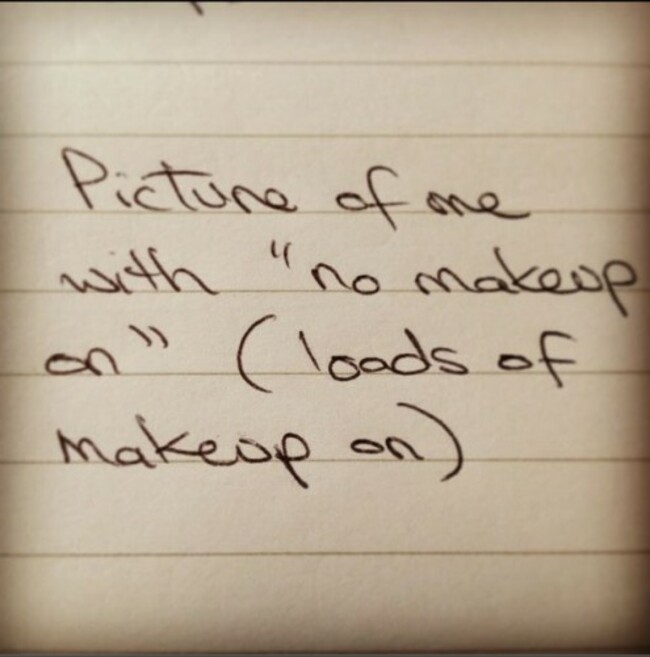 Picture of me
with "no makeup
on" (loads of
makeup on)